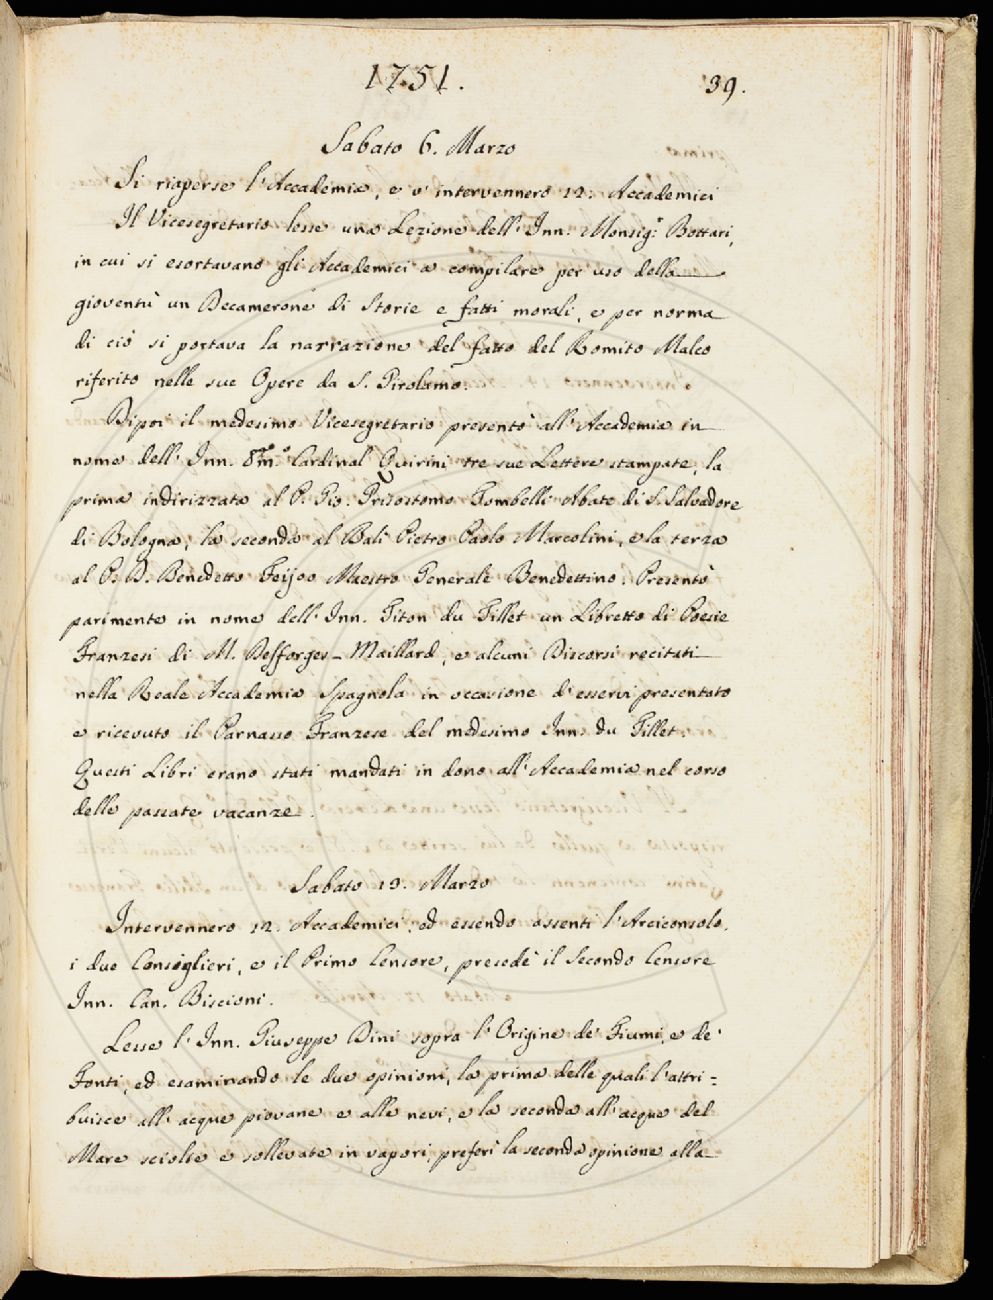 1751.
39.
Sabato 6. Marzo
Si riaperse l'Accademia, e v'intervennero 12. Accademici
Il Vicesegretario lesse una Lezione dell' Inn. Monsig.r Bottari,
in cui si esortavano gli Accademici a compilare per uso della
gioventù un Decamerone di Storie e fatti morali, e per norma
di ciò si portava la narrazione del fatto del Romito Malco
riferito nelle sue Opere da S. Girolamo.
Dipoi il medesimo Vicesegretario presentò all' Accademia in
nome dell' Inn. Em.o Cardinal Quirini tre sue Lettere stampate, la
prima indirizzata al P. Gio. Grisostomo Trombelli Abate di S. Salvadore
di Bologna, la seconda al Balì Pietro Paolo Marcolini, e la terza
al P. D. Benedetto Feijoo Maestro Generale Benedettino. Presentò
parimente in nome dell' Inn. Titon du Tillet un Libretto di Poesie
Franzesi di M. Desforges-Maillard, e alcuni Discorsi recitati
nella Reale Accademia Spagnola in occasione d'esservi presentato
e ricevuto il Parnasso Franzese del medesimo Inn. du Tillet.
Questi Libri erano stati mandati in dono all' Accademia nel corso
delle passate vacanze.
Sabato 13. Marzo
Intervennero 12. Accademici, ed essendo assenti l'Arciconsolo,
i due Consiglieri, e il Primo Censore, presedè il Secondo Censore
Inn. Can. Biscioni.
Lesse l'Inn. Giuseppe Dini sopra l'Origine de' Fiumi, e de'
Fonti, ed esaminando le due opinioni, la prima delle quali l'attri=
buisce all' acque piovane e alle nevi, e la seconda all' acque del
Mare sciolte e sollevate in vapori, preferì la seconda opinione alla